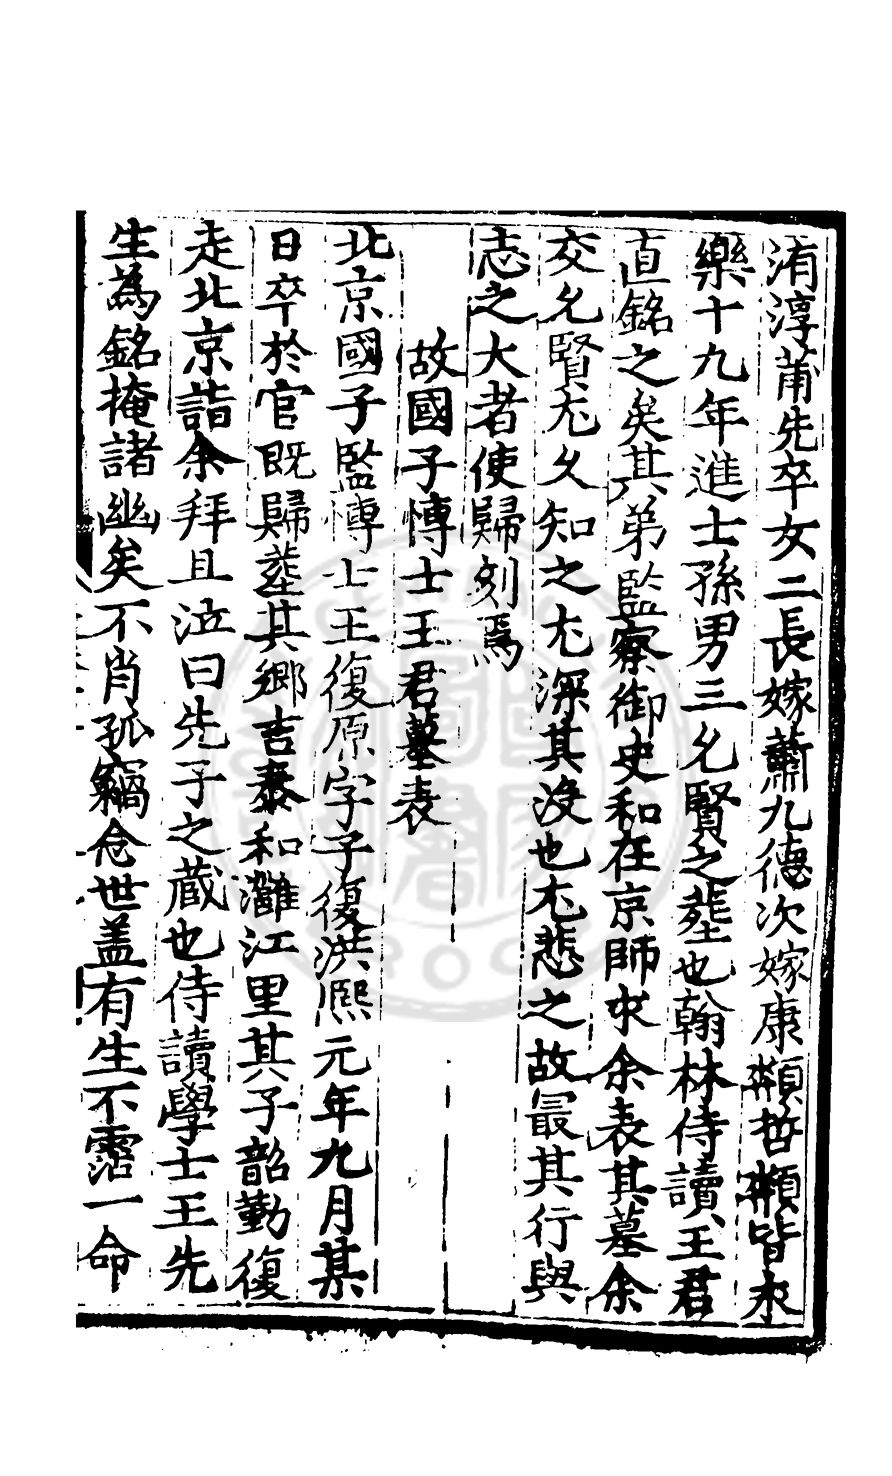 洧淳莆先卒女二長嫁蕭九德次嫁康𫖳哲𫖳皆永
樂十九年進士孫男三允賢之塟也翰林侍讀王君
直銘之矣其弟監察御史和在京師求余表其墓余
交允賢尤久知之尤深其没也尤悲之故㝡其行與
志之大者使歸刻焉
故國子博士王君墓表
北京國子監博士王復原字子復洪熈元年九月某
日卒於官既歸塟其鄉吉泰和灘江里其子韶勤復
走北京詣余拜且泣曰先子之蔵也侍讀學士王先
生為銘掩諸幽矣不肖孤竊念世盖有生不霑一命